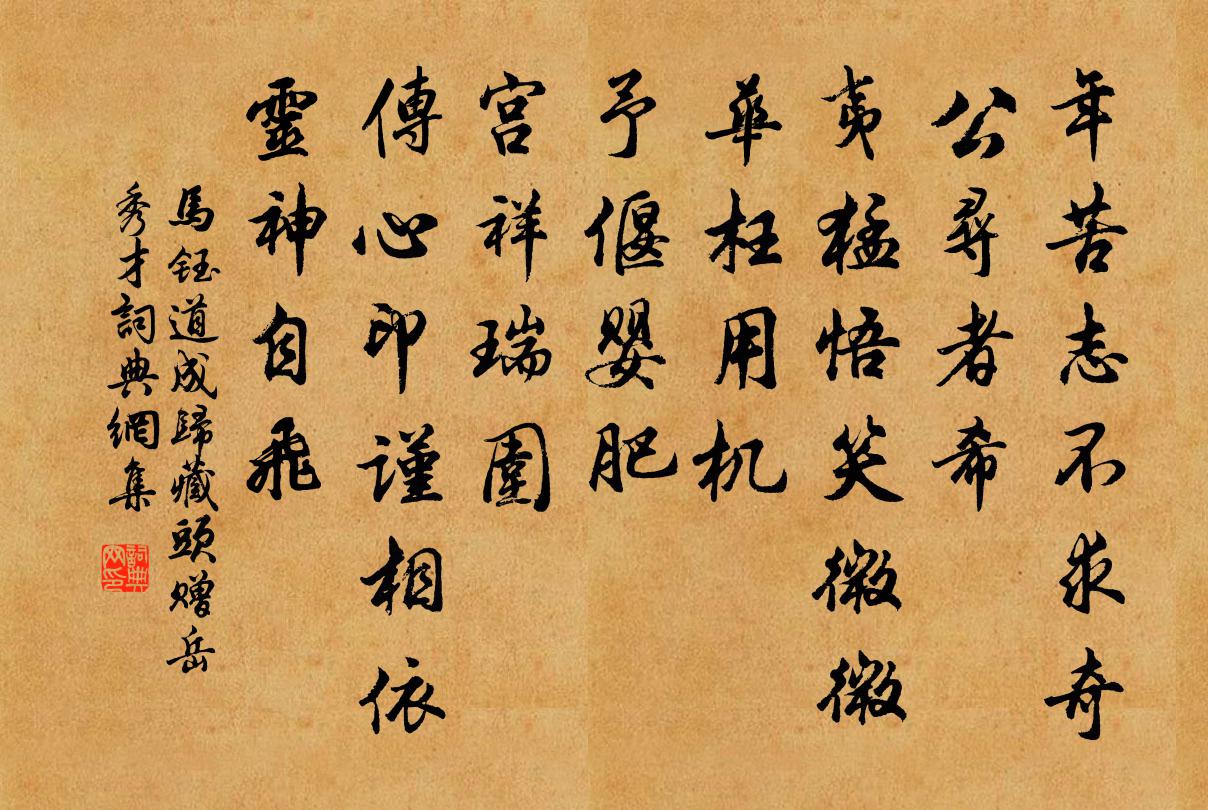 年苦志不求奇
公尋者希
夷猛悟笑微微
華枉用机
予偃嬰肥
宮祥瑞圍
傳心印謹相依
靈神自飛
馬鈺道成歸藏頭贈岳
秀才詞典網集
詞典網印